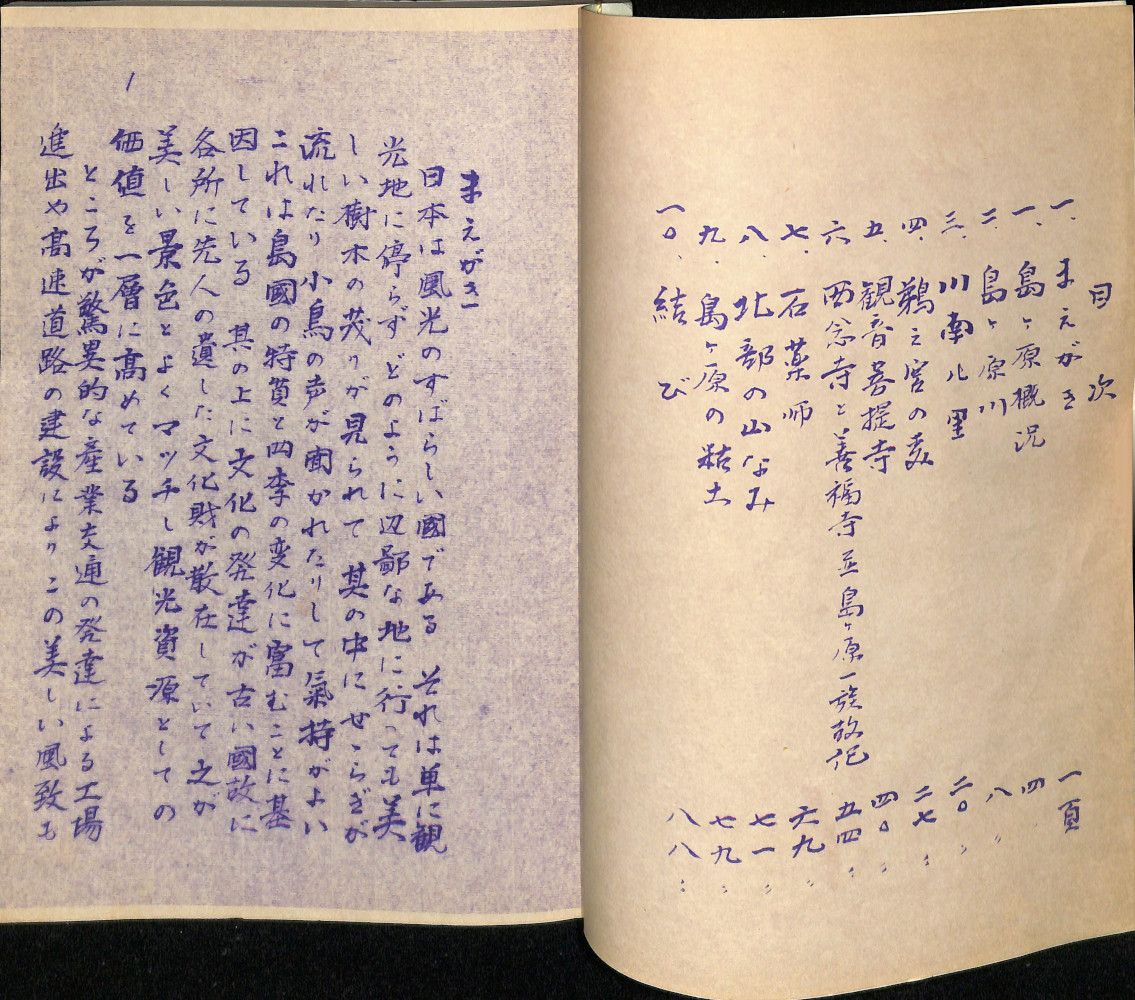 目次
一、まえがき 一頁
一、島ヶ原概況 四
二、島ヶ原川 八〃
三、川南ル里 二〇〃
四、鵜之宮の森 二七〃
五、観音菩提寺 四〇〃
六、西念寺と善福寺並島ヶ原一族故記 五四〃
七、石薬師 六九〃
八、北部の山なみ 七一〃
九、島ヶ原の粘土 七九〃
一〇、結び 八八〃
まえがき
日本は風光のすばらしい國である それは単に観
光地に停らずどのように辺鄙な地に行っても美
しい樹木の茂りが見られて 其の中にせゝらぎが
流れたり小鳥の声が聞かれたりして氣持がよい
これは島國の特質と四季の変化に富むことに基
因している 其の上に文化の発達が古い國故に
各所に先人の遺した文化財が散在していて之が
美しい景色とよくマッチし観光資源としての
価値を一層に高めている
ところが驚異的な産業交通の発達による工場
進出や高速道路の建設によりこの美しい風致も
1